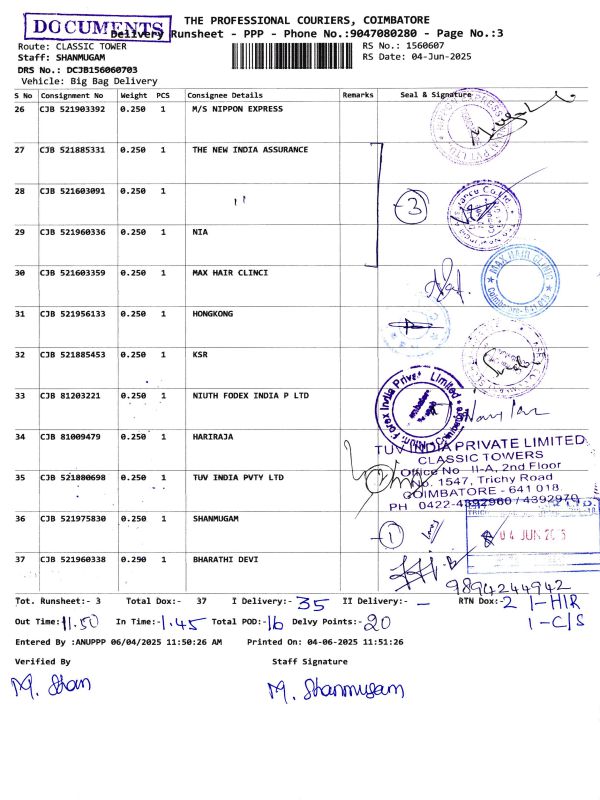 DOCUMENTS
THE PROFESSIONAL COURIERS, COIMBATORE
Delivery Runsheet - PPP - Phone No.:9047080280 - Page No.:3
Route: CLASSIC TOWER
RS No.: 1560607
Staff: SHANMUGAM
RS Date: 04-Jun-2025
DRS No.: DCJB156060703
Vehicle: Big Bag Delivery
S No Consignment No Weight PCS Consignee Details Remarks Seal & Signature
26 CJB 521903392 0.250 1 M/S NIPPON EXPRESS
27 CJB 521885331 0.250 1 THE NEW INDIA ASSURANCE
28 CJB 521603091 0.250 1 " -3
29 CJB 521960336 0.250 1 NIA
30 CJB 521603359 0.250 1 MAX HAIR CLINCI
MAX HAIR CLINIC
Coimbatore- 641 018
31 CJB 521956133 0.250 1 HONGKONG
32 CJB 521885453 0.250 1 KSR
33 CJB 81203221 0.250 1 NIUTH FODEX INDIA P LTD
Forex India Private Limited
34 CJB 81009479 0.250 1 HARIRAJA
TUV INDIA PRIVATE LIMITED
CLASSIC TOWERS
Office No II-A, 2nd Floor
No. 1547, Trichy Road
COIMBATORE - 641 018.
PH 0422-4392960 / 4392970
35 CJB 521880698 0.250 1 TUV INDIA PVTY LTD
36 CJB 521975830 0.250 1 SHANMUGAM -1
04 JUN
37 CJB 521960338 0.290 1 BHARATHI DEVI
9894244942
Tot. Runsheet:- 3 Total Dox:- 37 I Delivery:- 35 II Delivery:- - RTN Dox:- 2 1-H/R
Out Time:- 11.50 In Time:- 1.45 Total POD:- 16 Delvy Points:- 20 1-C/S
Entered By :ANUPPP 06/04/2025 11:50:26 AM Printed On: 04-06-2025 11:51:26
Verified By Staff Signature
M. Shan M. Shanmugam